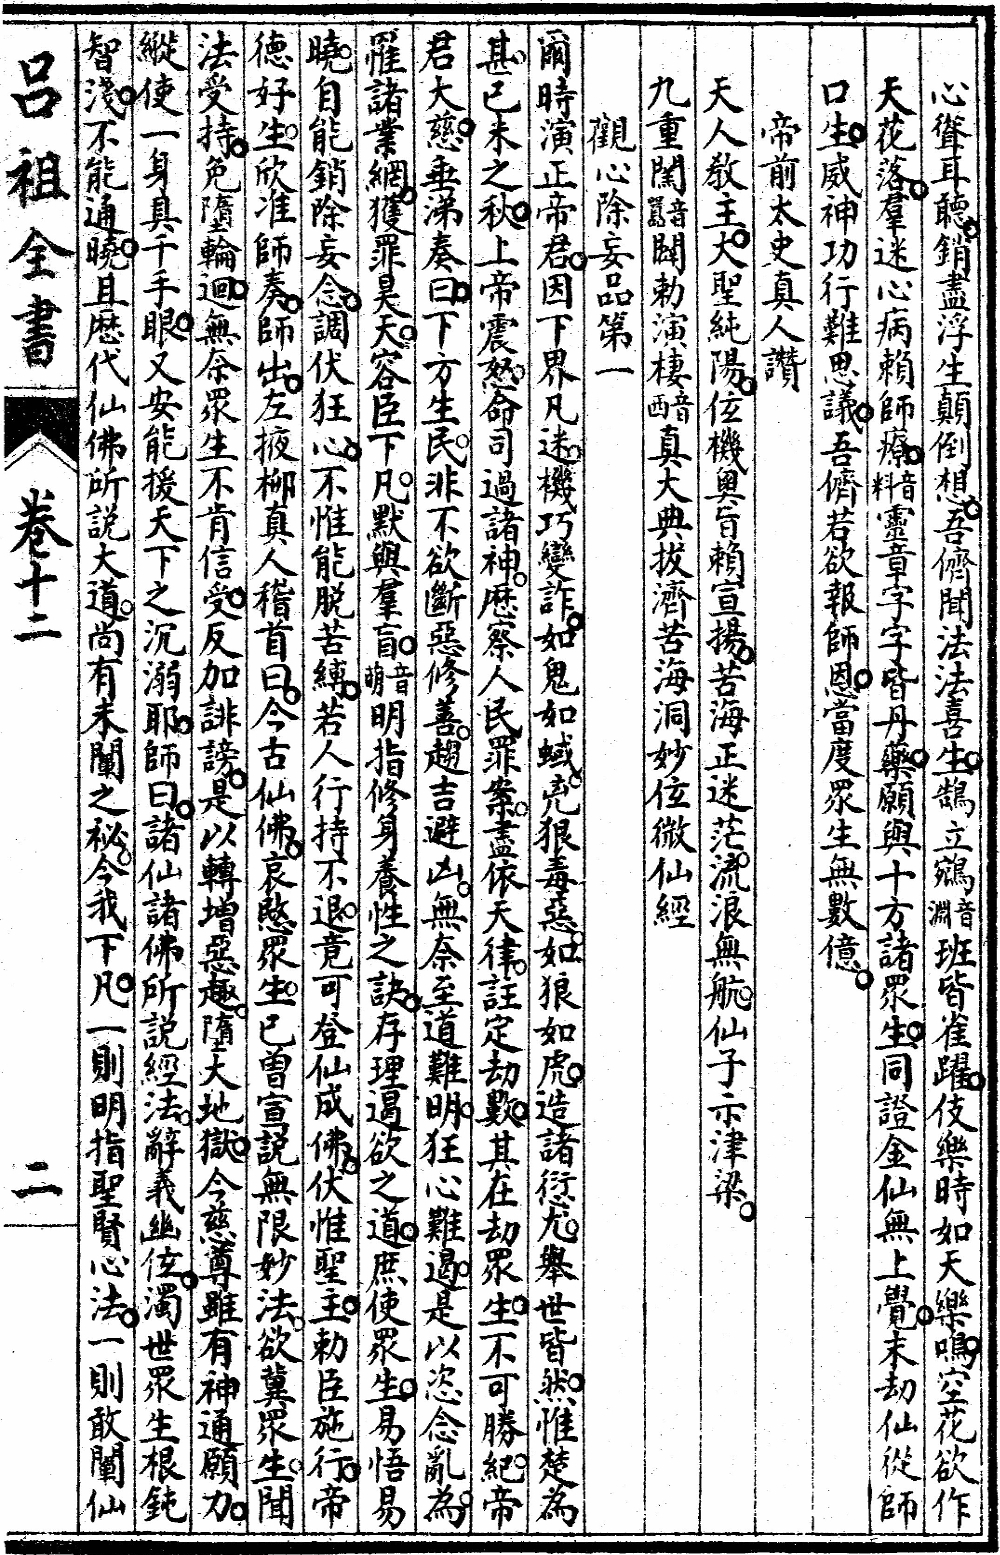 心聳耳聽銷盡浮生顛倒想吾儕聞法法喜生鵠立鵷音淵班皆雀躍伎樂時如天樂鳴空花欲作
天花落羣迷心病賴師療音料靈章字字皆丹藥願與十方諸眾生同證金仙無上覺末劫仙從師
口生威神功行難思議吾儕若欲報師恩當度眾生無數億
帝前太史真人讚
天人教主大聖純陽位機奧旨賴宣揚苦海正迷茫流浪無航仙子示津梁
九重闔音鬭勅演棲音西真大典拔濟苦海洞妙位微仙經
觀心除妄品第一
爾時演正帝君因下界凡迷機巧變詐如鬼如蜮虎狠毒惡如狼如虎造諸愆尤舉世皆然惟楚為
甚己未之秋上帝震怒命司過諸神歷察人民罪案盡依天律註定劫數其在劫眾生不可勝紀帝
君大慈垂涕奏曰下方生民非不欲斷惡修善趨吉避凶無奈至道難明狂心難遏是以恣念亂為
罹諸業網獲罪昊天容臣下凡默與羣盲音萌明指修身養性之訣存理遏欲之道庶使眾生易悟易
曉自能銷除妄念調伏狂心不惟能脫苦縛若人行持不退竟可登仙成佛伏惟聖主勅臣施行帝
德好生欣准師奏師出左掖柳真人稽首曰今古仙佛哀愍眾生已曾宣說無限妙法欲冀眾生聞
法受持免墮輪迴無奈眾生不肯信受反加誹謗是以轉增惡趣墮大地獄今慈尊雖有神通願力
縱使一身具千手眼又安能援天下之沉溺耶師曰諸仙諸佛所說經法辭義幽位濁世眾生根鈍
智淺不能通曉且歷代仙佛所說大道尚有未闡之祕今我下凡一則明指聖賢心法一則敢闡仙
呂祖全書
卷十二
二